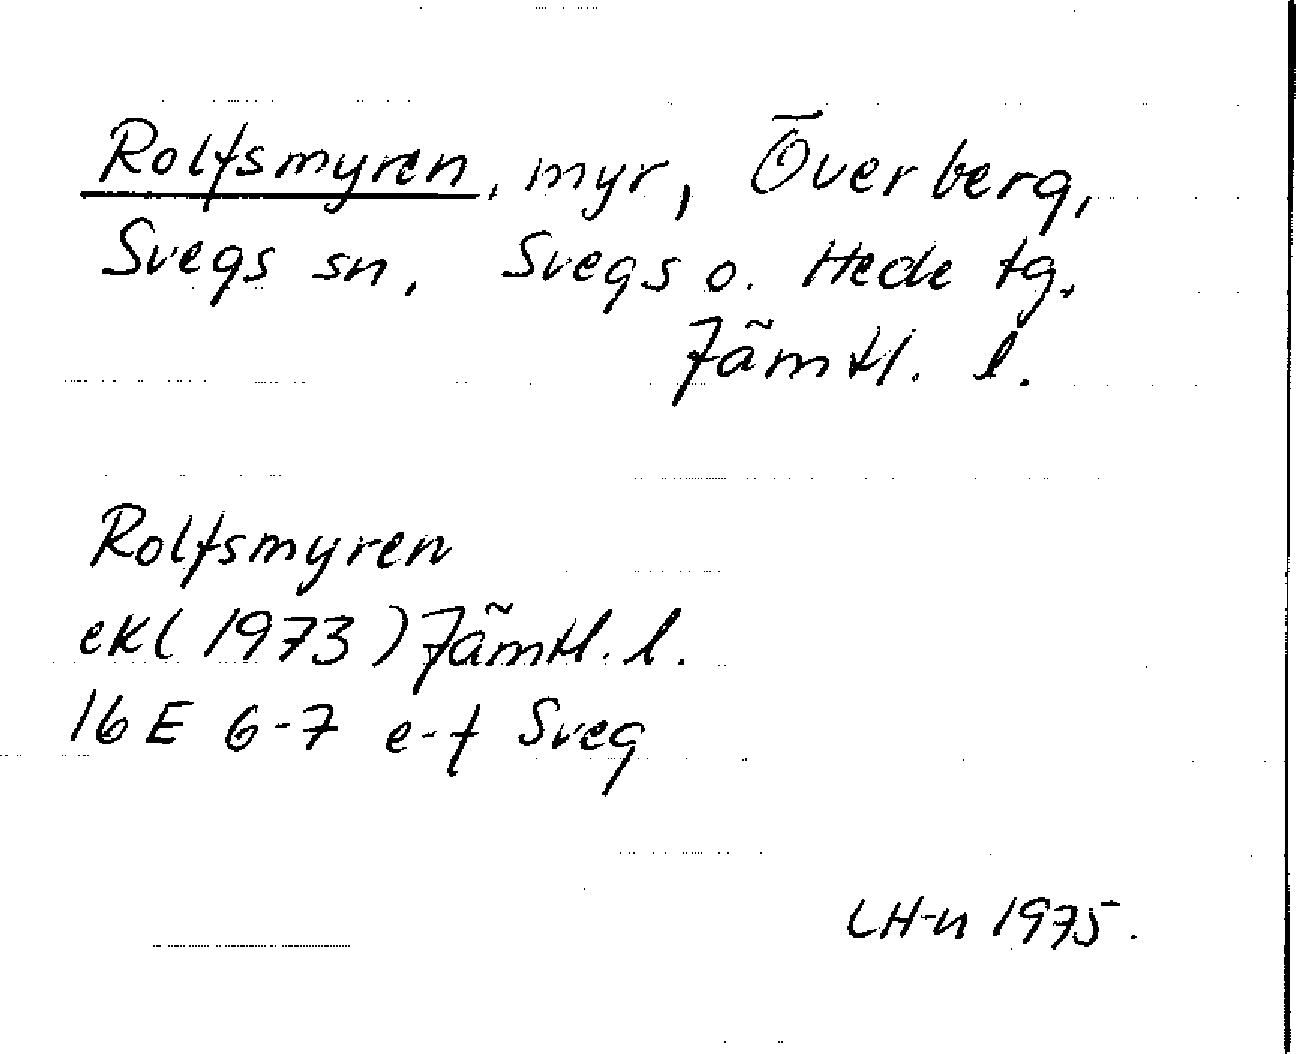 Rolfsmyren, myr, Överberg,
Svegs sn, Svegs o. Hede tg.
Jämtl. l.
Rolfsmyren
ekl (1973) Jämtl. l.
16 E 6-7 e-f Sveg
LH-n 1975.